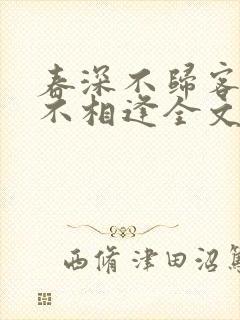 春深不歸客
不相逢全文
西脩 津田沼篤